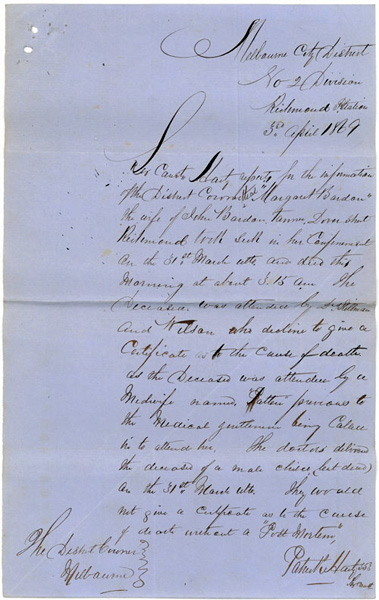 Melbourne City District
No 2 Division
Richmond Station
3rd April 1869
Const Hart reports for the information
of the District Coroner that "Margaret Bardon"
the wife of John Bardon Tanner Dover Street
Richmond took sick in her Confinement
on the 31st March ulto and died this
Morning at about 3.15 am. The
Deceased was attended by Drs
and Wilson who decline to give a
Certificate as to the cause of death
as the Deceased was attended by a
Midwife named previous to
the Medical gentlemen being Called
in to attend her. The doctors delivered
the deceased of a male child (but dead)
on the 31st March ulto. They would
not give a Certificate as to the cause
of death without a "Post Mortem"
Patrick Hart
The District Coroner
Melbourne